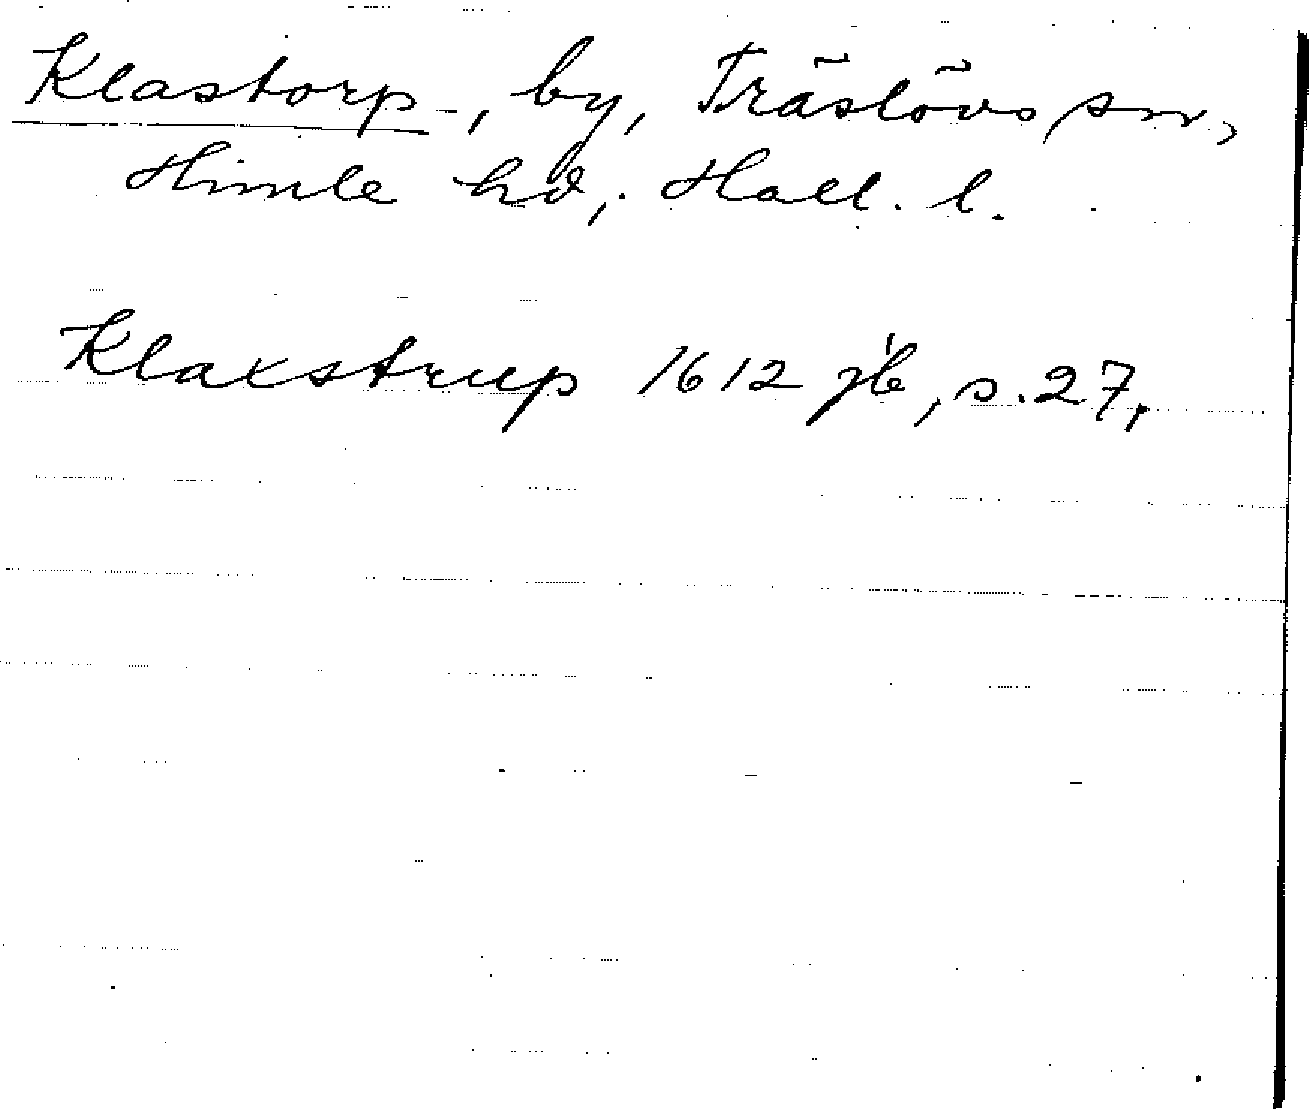 Klastorp, by, Träslövs sn,
Himle hd, Hall. l.
Klaxstrup 1612 jb, s. 27.